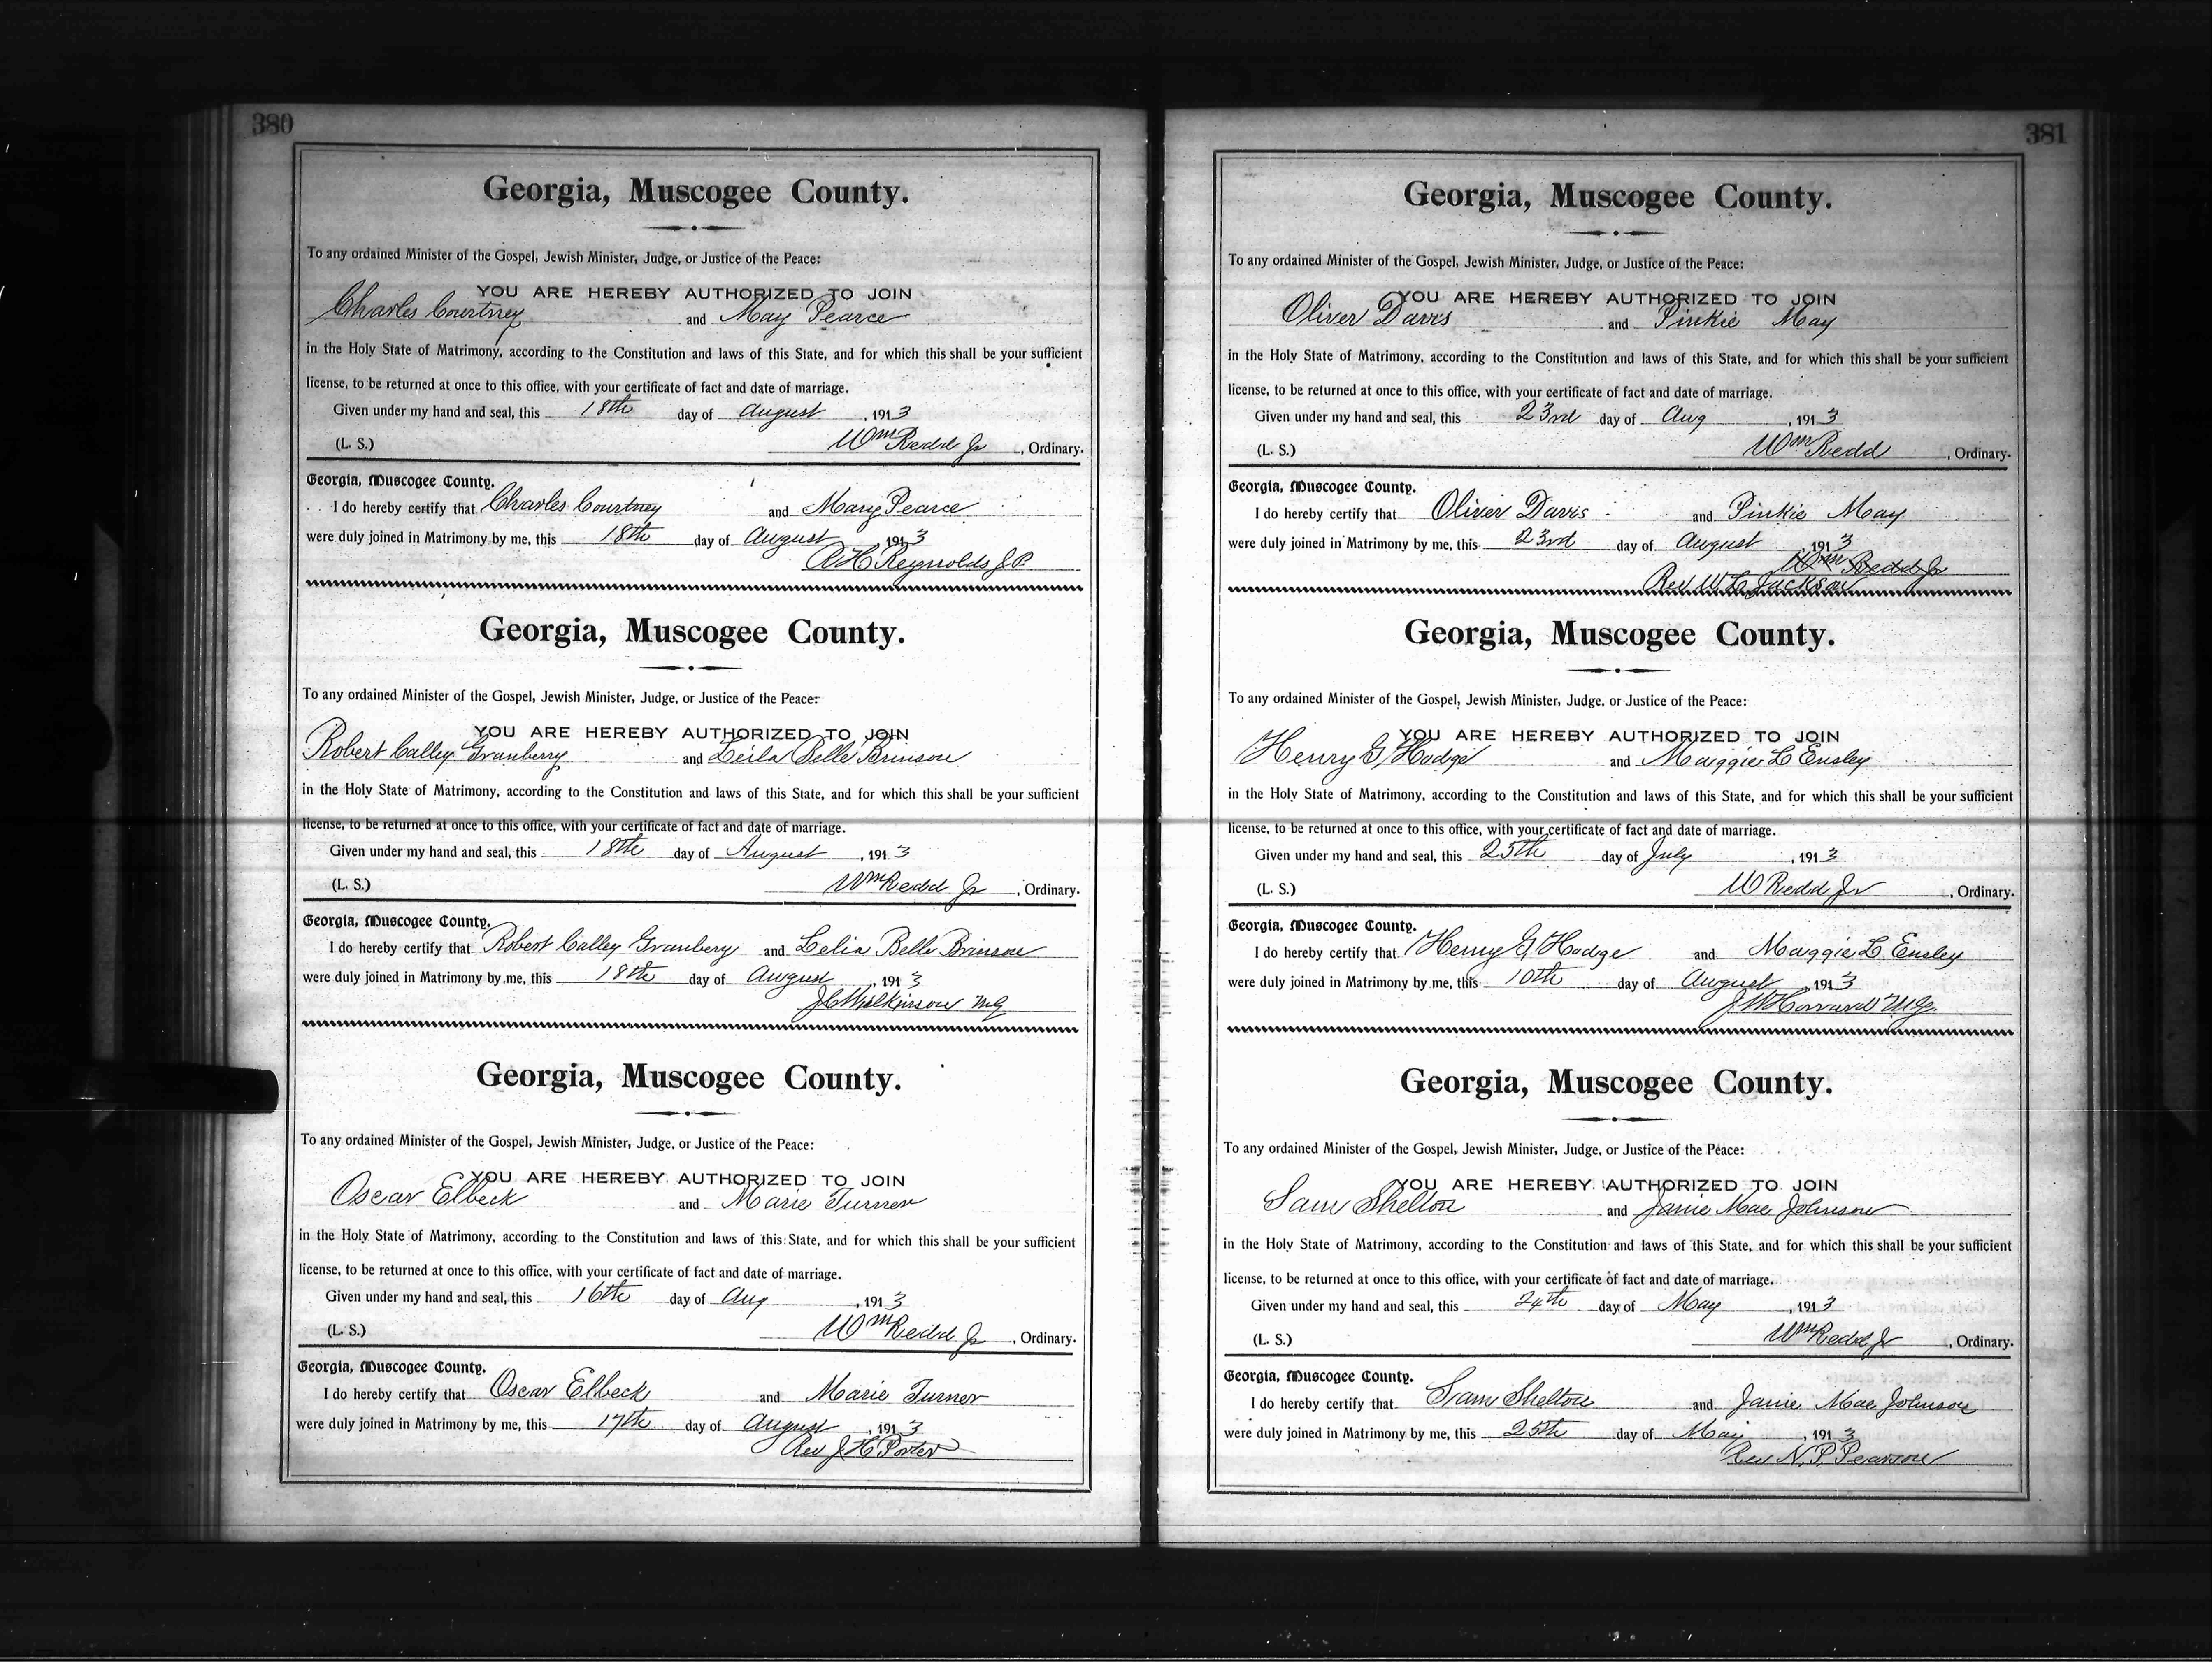 380
Georgia, Muscogee County.
To any ordained Minister of the Gospel, Jewish Minister, Judge, or Justice of the Peace:
YOU ARE HEREBY AUTHORIZED TO JOIN
Charles Courtney and May Pearce
in the Holy State of Matrimony, according to the Constitution and laws of this State, and for which this shall be your sufficient
license, to be returned at once to this office, with your certificate of fact and date of marriage.
Given under my hand and seal, this 18th day of August, 1913
(L. S.) Wm Redd Jr, Ordinary.
Georgia, Muscogee County.
I do hereby certify that Charles Courtney and Mary Pearce
were duly joined in Matrimony by me, this 18th day of August, 1913
R H Reynolds J.P.
Georgia, Muscogee County.
To any ordained Minister of the Gospel, Jewish Minister, Judge, or Justice of the Peace:
YOU ARE HEREBY AUTHORIZED TO JOIN
Robert Calley Granberry and Leila Belle Brinson
in the Holy State of Matrimony, according to the Constitution and laws of this State, and for which this shall be your sufficient
license, to be returned at once to this office, with your certificate of fact and date of marriage.
Given under my hand and seal, this 18th day of August, 1913
(L. S.) Wm Redd Jr, Ordinary.
Georgia, Muscogee County.
I do hereby certify that Robert Calley Granbery and Lelia Belle Brinson
were duly joined in Matrimony by me, this 18th day of August, 1913
J C Wilkinson MG
Georgia, Muscogee County.
To any ordained Minister of the Gospel, Jewish Minister, Judge, or Justice of the Peace:
YOU ARE HEREBY AUTHORIZED TO JOIN
Oscar Elbeck and Marie Turner
in the Holy State of Matrimony, according to the Constitution and laws of this State, and for which this shall be your sufficient
license, to be returned at once to this office, with your certificate of fact and date of marriage.
Given under my hand and seal, this 16th day of Aug, 1913
(L. S.) Wm Redd Jr, Ordinary.
Georgia, Muscogee County.
I do hereby certify that Oscar Elbeck and Marie Turner
were duly joined in Matrimony by me, this 17th day of August, 1913
Rev J H Porter
381
Georgia, Muscogee County.
To any ordained Minister of the Gospel, Jewish Minister, Judge, or Justice of the Peace:
YOU ARE HEREBY AUTHORIZED TO JOIN
Oliver Davis and Pinkie May
in the Holy State of Matrimony, according to the Constitution and laws of this State, and for which this shall be your sufficient
license, to be returned at once to this office, with your certificate of fact and date of marriage.
Given under my hand and seal, this 23rd day of Aug, 1913
(L. S.) Wm Redd, Ordinary.
Georgia, Muscogee County.
I do hereby certify that Oliver Davis and Pinkie May
were duly joined in Matrimony by me, this 23rd day of August, 1913
Wm Redd Jr
Rev W L Jackson
Georgia, Muscogee County.
To any ordained Minister of the Gospel, Jewish Minister, Judge, or Justice of the Peace:
YOU ARE HEREBY AUTHORIZED TO JOIN
Henry G, Hodge and Maggie L Ensley
in the Holy State of Matrimony, according to the Constitution and laws of this State, and for which this shall be your sufficient
license, to be returned at once to this office, with your certificate of fact and date of marriage.
Given under my hand and seal, this 25th day of July, 1913
(L. S.) W Redd Jr, Ordinary.
Georgia, Muscogee County.
I do hereby certify that Henry G, Hodge and Maggie L Ensley
were duly joined in Matrimony by me, this 10th day of August, 1913
J W Howard M.G.
Georgia, Muscogee County.
To any ordained Minister of the Gospel, Jewish Minister, Judge, or Justice of the Peace:
YOU ARE HEREBY AUTHORIZED TO JOIN
Sam Shelton and Janie Mae Johnson
in the Holy State of Matrimony, according to the Constitution and laws of this State, and for which this shall be your sufficient
license, to be returned at once to this office, with your certificate of fact and date of marriage.
Given under my hand and seal, this 24th day of May, 1913
(L. S.) Wm Redd Jr, Ordinary.
Georgia, Muscogee County.
I do hereby certify that Sam Shelton and Janie Mae Johnson
were duly joined in Matrimony by me, this 25th day of May, 1913
Rev N. P. Pearson